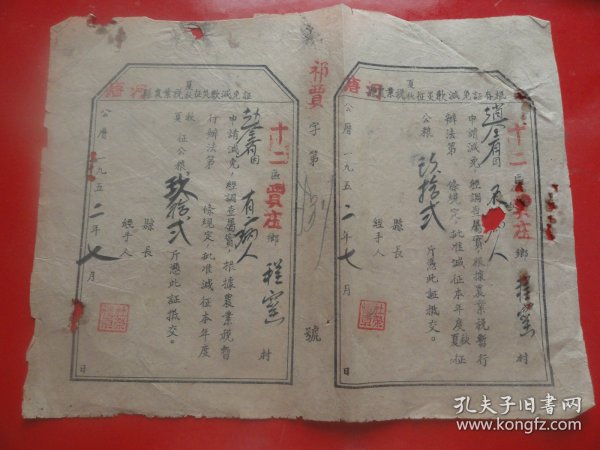 唐河縣農業稅夏秋征災歉減免存証根
十二區賈庄鄉程窑村
趙 有病人
申請減免，經調查屬實根據農業稅暫行
辦法第 條規定，批准減征本年度夏秋征
公糧玖拾弍斤憑此証撤交。
縣長
經手人
公曆一九五二年七月 日
祁賈字第 號
唐河縣農業稅夏秋征災歉減免証
十二區賈庄鄉程窑村
趙 有病人
申請減免，經調查屬實，根據農業稅暫
行辦法第 條規定，批准減征本年度
夏秋征公糧玖拾弍斤憑此証撤交。
縣長
經手人
公曆一九五二年七月 日
孔夫子旧书网
www.kongfz.com